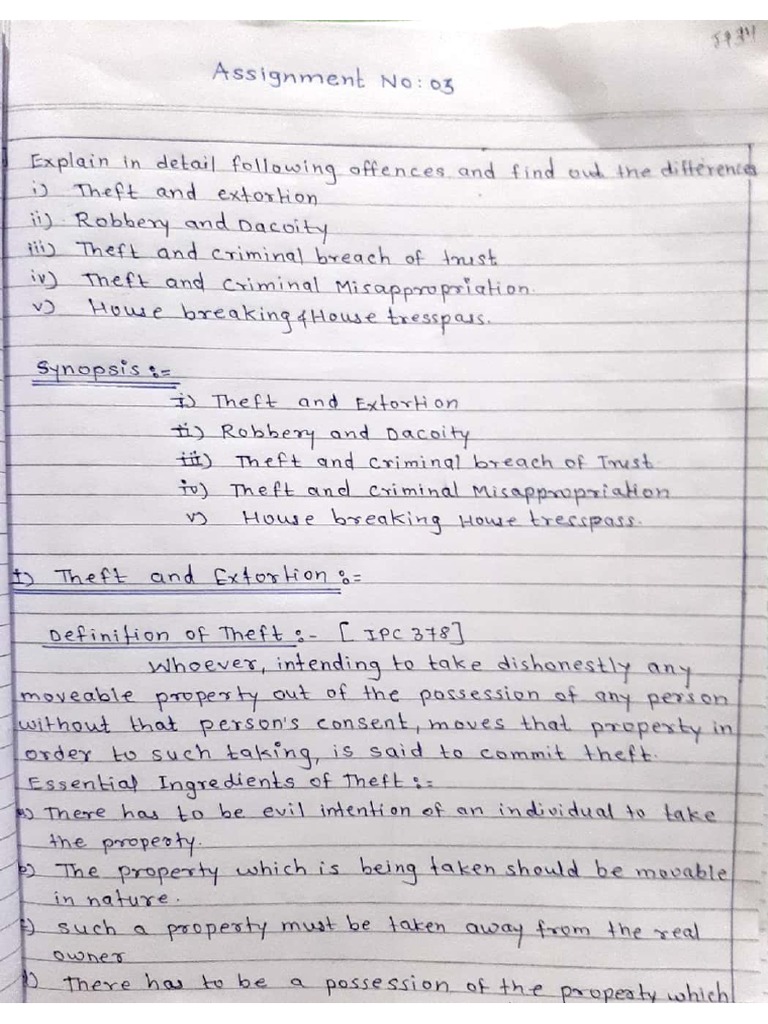 Assignment No: 03
Explain in detail following offences and find out the differences
i) Theft and extortion
ii) Robbery and Dacoity
iii) Theft and criminal breach of trust
iv) Theft and criminal Misappropriation.
v) House breaking & House tresspass.
Synopsis :=
i) Theft and Extortion
ii) Robbery and Dacoity
iii) Theft and criminal breach of Trust
iv) Theft and criminal Misappropriation
v) House breaking House tresspass.
i) Theft and Extortion :=
Definition of Theft :- [IPC 378]
Whoever, intending to take dishonestly any
moveable property out of the possession of any person
without that person's consent, moves that property in
order to such taking, is said to commit theft.
Essential Ingredients of Theft :=
a) There has to be evil intention of an individual to take
the property.
b) The property which is being taken should be movable
in nature.
c) such a property must be taken away from the real
owner
d) There has to be a possession of the property which